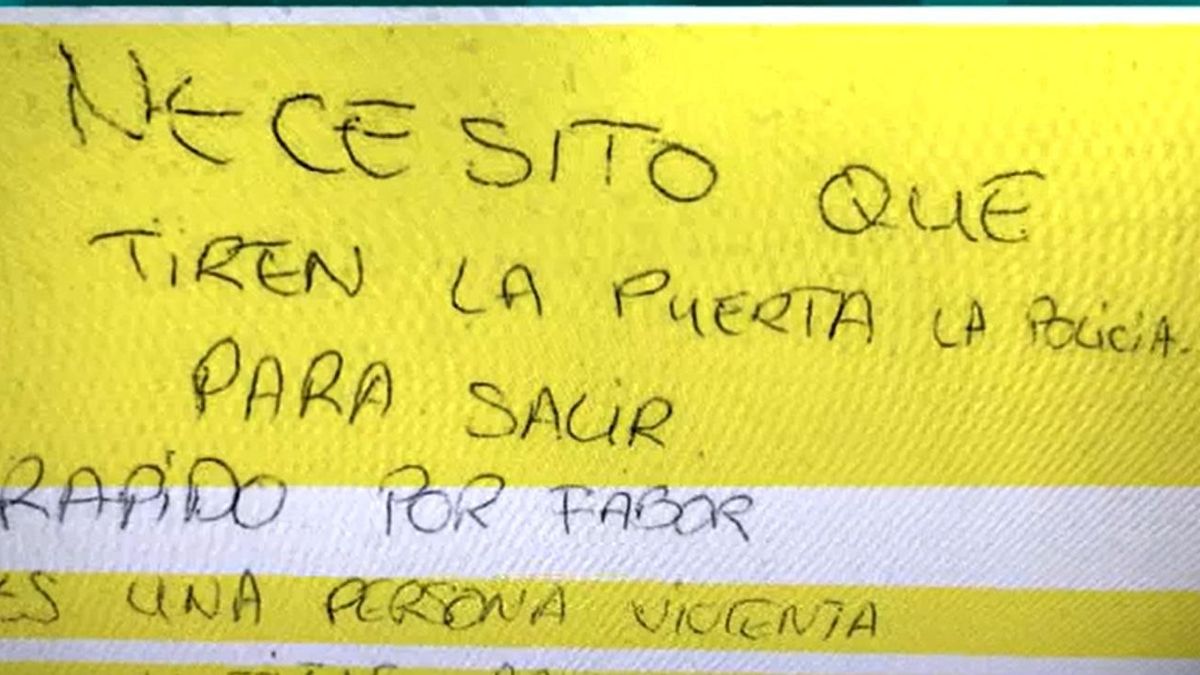 NECESITO QUE
TIREN LA PUERTA LA POLICIA.
PARA SALIR
RAPIDO POR FABOR
ES UNA PERSONA VIOLENTA